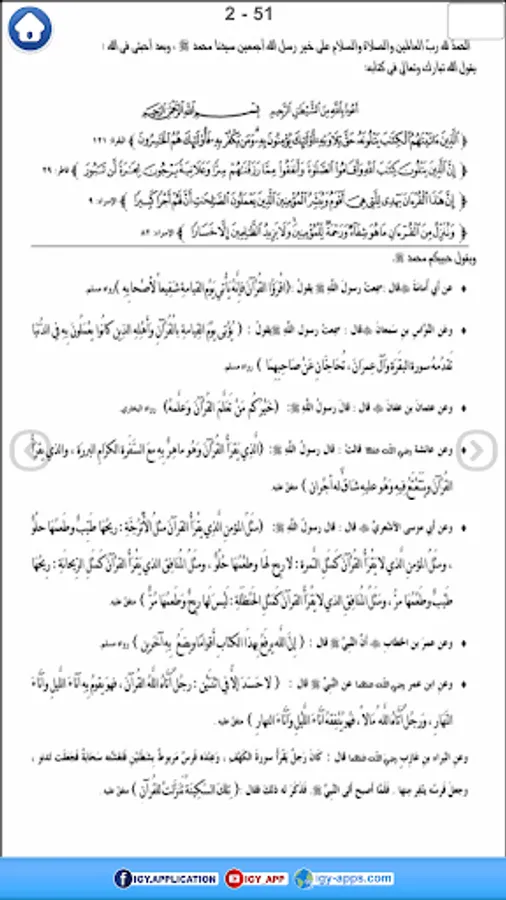 2 - 51
الحمد لله رب العالمين والصلاة والسلام على خير رسل الله أجمعين سيدنا محمد ﷺ ، وبعد أحبتي في الله :
يقول الله تبارك وتعالى في كتابه:
أعوذ بالله من الشيطان الرجيم بسم الله الرحمن الرحيم
﴿ ٱلَّذِينَ ءَاتَيْنَٰهُمُ ٱلْكِتَٰبَ يَتْلُونَهُۥ حَقَّ تِلَاوَتِهِۦٓ أُو۟لَٰٓئِكَ يُؤْمِنُونَ بِهِۦ وَمَن يَكْفُرْ بِهِۦ فَأُو۟لَٰٓئِكَ هُمُ ٱلْخَٰسِرُونَ ﴾ البقرة: ١٢١
﴿ إِنَّ ٱلَّذِينَ يَتْلُونَ كِتَٰبَ ٱللَّهِ وَأَقَامُوا۟ ٱلصَّلَوٰةَ وَأَنفَقُوا۟ مِمَّا رَزَقْنَٰهُمْ سِرًّا وَعَلَانِيَةً يَرْجُونَ تِجَٰرَةً لَّن تَبُورَ ﴾ فاطر: ٢٩
﴿ إِنَّ هَٰذَا ٱلْقُرْءَانَ يَهْدِى لِلَّتِى هِىَ أَقْوَمُ وَيُبَشِّرُ ٱلْمُؤْمِنِينَ ٱلَّذِينَ يَعْمَلُونَ ٱلصَّٰلِحَٰتِ أَنَّ لَهُمْ أَجْرًا كَبِيرًا ﴾ الإسراء: ٩
﴿ وَنُنَزِّلُ مِنَ ٱلْقُرْءَانِ مَا هُوَ شِفَآءٌ وَرَحْمَةٌ لِّلْمُؤْمِنِينَ وَلَا يَزِيدُ ٱلظَّٰلِمِينَ إِلَّا خَسَارًا ﴾ الإسراء: ٨٢
ويقول حبيبكم محمد ﷺ:
• عن أبي أمامة ؓ قال: سمعت رسول الله ﷺ يقول :(اقرَؤُا القُرْآنَ فإنَّهُ يَأْتي يَوْمَ القيامةِ شَفيعاً لأَصْحابِهِ )رواه مسلم.
• وعن النَّوَّاس بن سَمعانَ ؓ قال : سمعتُ رسول اللهِ ﷺ يقولُ : ( يُؤْتى يومَ القِيامةِ بالقُرْآنِ وَأَهْلِهِ الذين كانُوا يَعْمَلُونَ بِهِ في الدُّنيا
تَقدُمُهُ سورة البقرَةِ وَآل عِمرَانَ ، تُحَاجَّانِ عَنْ صاحِبِهِمَا ) رواه مسلم.
• وعن عثمان بن عفان ؓ قال : قال رسولُ الله ﷺ: (خَيْرُكُم مَنْ تَعَلَّمَ القُرْآنَ وَعلَّمَهُ) رواه البخاري.
• وعن عائشة رضي الله عنها قالت : قال رسولُ الله ﷺ: (الَّذي يَقرَأُ القُرْآنَ وَهُو ماهِرٌ بِهِ معَ السَّفَرةِ الكِرَامِ البررَةِ ، والذي يقرَأُ
القُرْآنَ وَيَتَتَعْتَعُ فِيهِ وَهُو عليهِ شَاقٌّ له أَجْران ) متفق عليه.
• وعن أبي موسى الأشعري ؓ قال : قال رسول الله ﷺ : (مَثَلُ المؤمنِ الَّذي يقْرَأُ القرآنَ مثلُ الأُتْرُجَّةِ : رِيحُهَا طَيِّبٌ وطَعمُهَا حلْوٌ
، ومثَلُ المؤمنِ الَّذي لا يَقْرَأُ القُرْآنَ كَمثَلِ التَّمرةِ : لا رِيح لها وطعْمُهَا حلْوٌ ، ومثَلُ المُنَافِق الذي يَقْرَأُ القرْآنَ كَمثَلِ الرِّيحانَةِ : رِيحُها
طَيّبٌ وطَعْمُهَا مرٌّ ، ومَثَلُ المُنَافِقِ الذي لا يَقْرَأُ القرآنَ كَمَثَلِ الحَنْظَلَةِ : لَيْسَ لها ريحٌ وَطَعمُهَا مُرٌّ ) متفق عليه.
• وعن عمرَ بن الخطابِ ؓ أنَّ النبيَّ ﷺ قال : ( إنَّ اللَّه يرفَعُ بِهذَا الكتابِ أقواماً ويضَعُ بِهِ آخَرين ) رواه مسلم.
• وعن ابن عمر رضي الله عنهما عن النبيِّ ﷺ قال : ( لا حَسَدَ إلاَّ في اثنَتَيْن : رجُلٌ آتاهُ اللَّه القُرآنَ ، فهو يقومُ بهِ آناءَ اللَّيلِ وآناءَ
النَّهارِ ، ورجُلٌ آتاهُ اللَّه مالاً ، فهُو يُنْفِقهُ آنَاءَ اللَّيْلِ وآنَاءَ النهارِ ) متفق عليه.
وعن البراءِ بنِ عَازِبٍ رضي الله عنهما قال : كَانَ رَجلٌ يَقْرَأُ سورةَ الكَهْفِ ، وَعِنْدَه فَرسٌ مَربوطٌ بِشَطَنَيْنِ فَتَغَشَّته سَحَابَةٌ فَجَعَلَت تَدنو ،
وجعلَ فَرسُه ينفِر مِنها . فَلَمَّا أصبح أتى النبيَّ ﷺ. فَذكَرَ له ذلكَ فقال :( تِلكَ السَّكِينَةُ تَنَزَّلتْ للقُرآنِ ) متفق عليه.
IGY.APPLICATION IGY_APP igy-apps.com